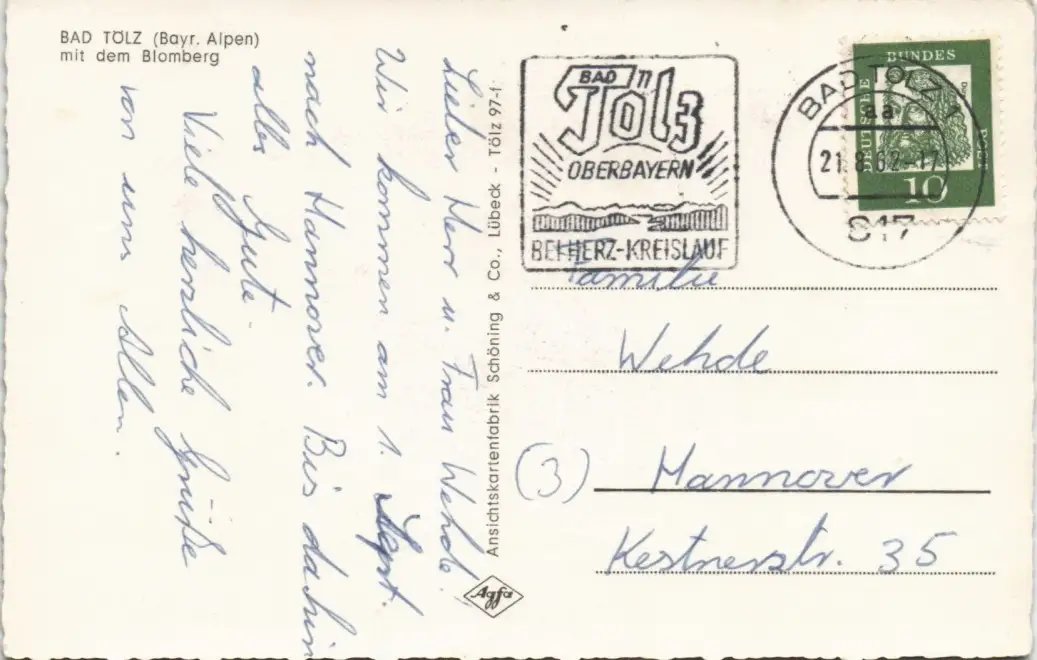 BAD TÖLZ (Bayr. Alpen)
mit dem Blomberg
Lieber Herr u. Frau Wehde!
Wir kommen am 1. Sept.
nach Hannover. Bis dahin
alles Gute
Viele herzliche Grüße
von uns Allen.
Ansichtskartenfabrik Schöning & Co., Lübeck - Tölz 97-f
Agfa
BAD
Tölz
OBERBAYERN
BEI HERZ-KREISLAUF
BAD TÖLZ 1
aa
21.8.62-17
817
DEUTSCHE
BUNDES
POST
10
Familie
Wehde
(3) Hannover
Kestnerstr. 35